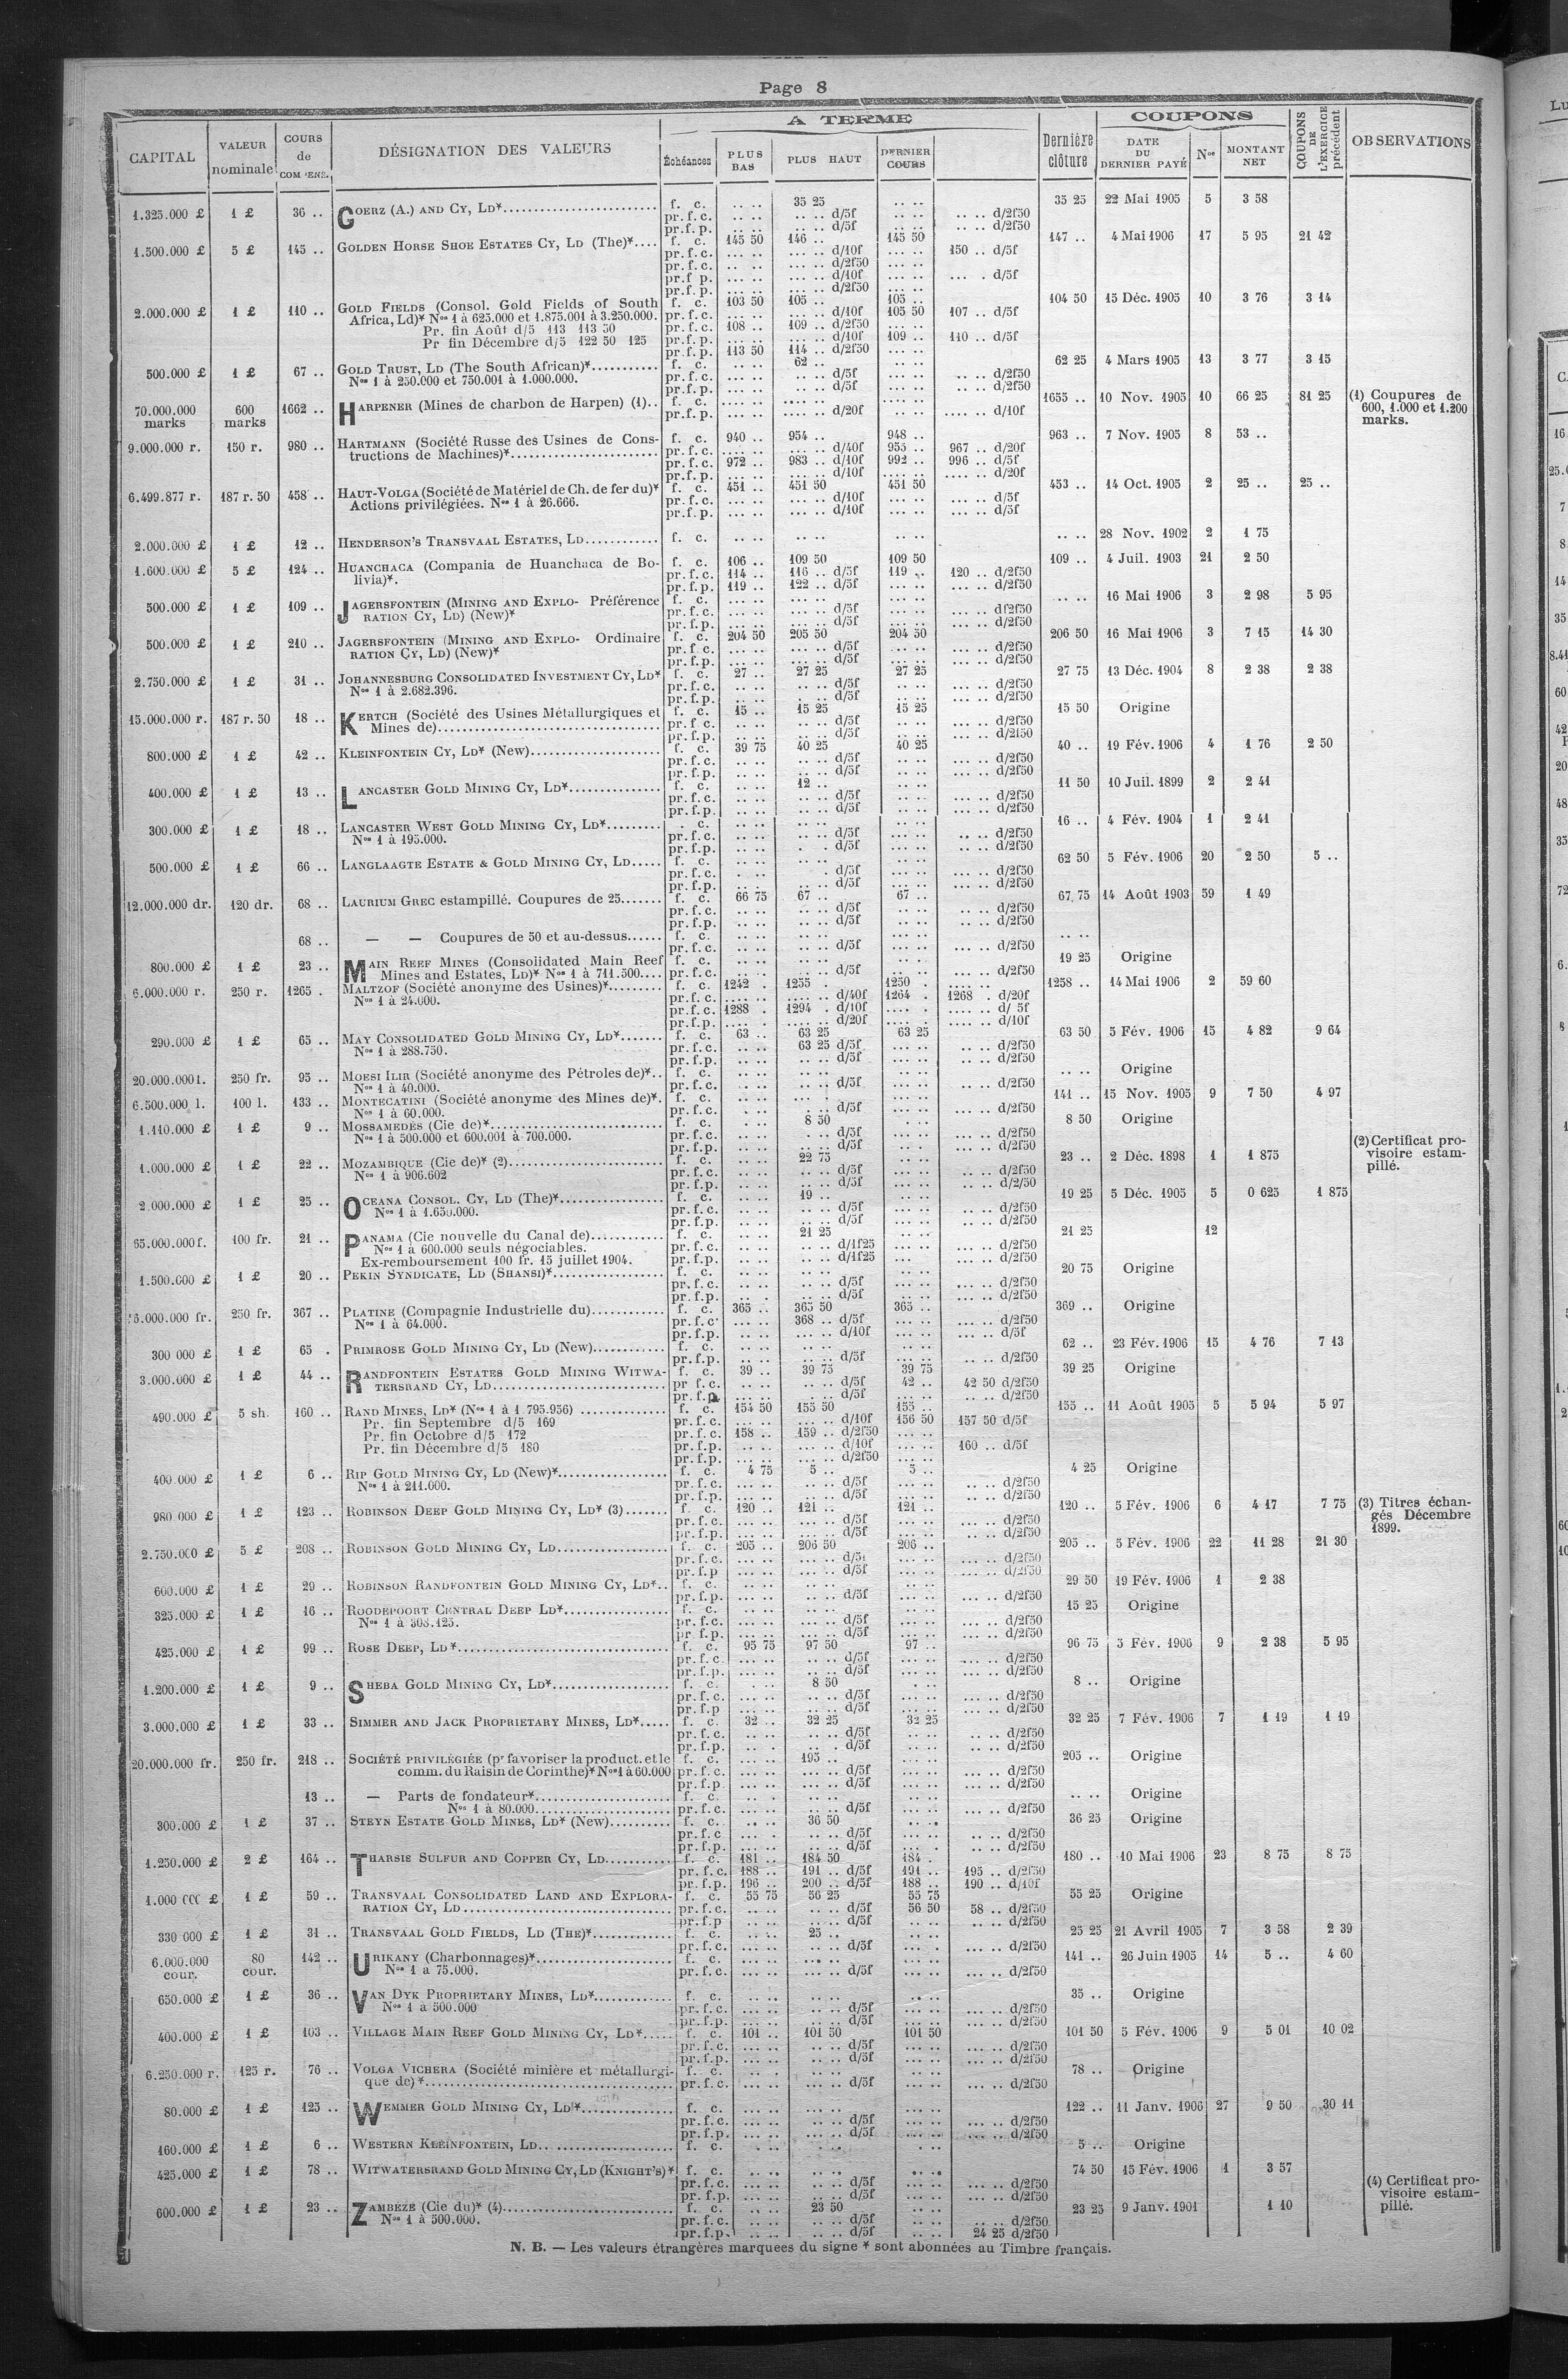 Page 8
CAPITAL
VALEUR nominale
COURS de
DÉSIGNATION DES VALEURS
A TERME
Échéances
PLUS BAS
PLUS HAUT
DERNIER COURS
Dernière clôture
COUPONS
DATE DU DERNIER PAYÉ
Nos
MONTANT NET
COUPONS DE L'EXERCICE précédent
OBSERVATIONS
1.325.000 £ 1 £ 36 .. GOERZ (A.) AND CY, LD* f. c. .. .. 35 25 .. .. 35 25 22 Mai 1905 5 3 58
pr. f. c. .. .. .. .. d/5f .. .. .. .. d/2f50
pr. f. p. .. .. .. .. d/5f .. .. .. .. d/2f50
1.500.000 £ 5 £ 145 .. GOLDEN HORSE SHOE ESTATES CY, LD (The)* f. c. 145 50 146 .. 145 50 147 .. 4 Mai 1906 17 5 95 21 42
pr. f. c. ... .. d/10f ... .. 150 .. d/5f
pr. f. c. ... .. d/2f50
pr. f. p. ... .. d/10f ... . d/5f
pr. f. p. ... .. d/2f50
2.000.000 £ 1 £ 110 .. GOLD FIELDS (Consol. Gold Fields of South f. c. 103 50 105 .. 105 .. 104 50 15 Déc. 1905 10 3 76 3 14
Africa, Ld)* Nos 1 à 625.000 et 1.875.001 à 3.250.000. pr. f. c. ... .. d/10f 105 50 107 .. d/5f
Pr. fin Août d/5 113 113 50 pr. f. c. 108 .. 109 .. d/2f50
Pr fin Décembre d/5 122 50 125 pr. f. p. ... .. d/10f 109 .. 110 .. d/5f
pr. f. p. 113 50 114 .. d/2f50
500.000 £ 1 £ 67 .. GOLD TRUST, LD (The South African)* f. c. 62 .. 62 25 4 Mars 1905 13 3 77 3 15
Nos 1 à 250.000 et 750.001 à 1.000.000. pr. f. c. d/5f d/2f50
pr. f. p. d/5f d/2f50
70.000.000 marks 600 marks 1662 .. HARPENER (Mines de charbon de Harpen) (1).. f. c. 1655 .. 10 Nov. 1905 10 66 25 81 25 (1) Coupures de 600, 1.000 et 1.200 marks.
pr. f. p. d/20f d/10f
9.000.000 r. 150 r. 980 .. HARTMANN (Société Russe des Usines de Cons- f. c. 940 .. 954 .. 948 .. 963 .. 7 Nov. 1905 8 53 ..
tructions de Machines)* pr. f. c. d/40f 955 .. 967 .. d/20f
pr. f. c. 972 .. 983 .. d/10f 992 .. 996 .. d/5f
pr. f. p. d/10f d/20f
6.499.877 r. 187 r. 50 458 .. HAUT-VOLGA (Société de Matériel de Ch. de fer du)* f. c. 451 .. 451 50 451 50 453 .. 14 Oct. 1905 2 25 .. 25 ..
Actions privilégiées. Nos 1 à 26.666. pr. f. c. d/10f d/5f
pr. f. p. d/10f d/5f
2.000.000 £ 1 £ 12 .. HENDERSON'S TRANSVAAL ESTATES, LD f. c. .. .. 28 Nov. 1902 2 1 75
1.600.000 £ 5 £ 124 .. HUANCHACA (Compania de Huanchaca de Bo- f. c. 106 .. 109 50 109 50 109 .. 4 Juil. 1903 21 2 50
livia)*. pr. f. c. 114 .. 116 .. d/5f 119 .. 120 .. d/2f50
pr. f. p. 119 .. 122 .. d/5f d/2f50
500.000 £ 1 £ 109 .. JAGERSFONTEIN (MINING AND EXPLO- Préférence f. c. .. .. 16 Mai 1906 3 2 98 5 95
RATION CY, LD) (New)* pr. f. c. d/5f d/2f50
pr. f. p. d/5f d/2f50
500.000 £ 1 £ 210 .. JAGERSFONTEIN (MINING AND EXPLO- Ordinaire f. c. 204 50 205 50 204 50 206 50 16 Mai 1906 3 7 15 14 30
RATION CY, LD) (New)* pr. f. c. d/5f d/2f50
pr. f. p. d/5f d/2f50
2.750.000 £ 1 £ 31 .. JOHANNESBURG CONSOLIDATED INVESTMENT CY, LD* f. c. 27 .. 27 25 27 25 27 75 13 Déc. 1904 8 2 38 2 38
Nos 1 à 2.682.396. pr. f. c. d/5f d/2f50
pr. f. p. d/5f d/2f50
15.000.000 r. 187 r. 50 18 .. KERTCH (Société des Usines Métallurgiques et f. c. 15 .. 15 25 15 25 15 50 Origine
Mines de) pr. f. c. d/5f d/2f50
pr. f. p. d/5f d/2f50
800.000 £ 1 £ 42 .. KLEINFONTEIN CY, LD* (New) f. c. 39 75 40 25 40 25 40 .. 19 Fév. 1906 4 1 76 2 50
pr. f. c. d/5f d/2f50
pr. f. p. d/5f d/2f50
400.000 £ 1 £ 13 .. LANCASTER GOLD MINING CY, LD* f. c. 12 .. 11 50 10 Juil. 1899 2 2 41
pr. f. c. d/5f d/2f50
pr. f. p. d/5f d/2f50
300.000 £ 1 £ 18 .. LANCASTER WEST GOLD MINING CY, LD* . c. 16 .. 4 Fév. 1904 1 2 41
Nos 1 à 195.000. pr. f. c. d/5f d/2f50
pr. f. p. d/5f d/2f50
500.000 £ 1 £ 66 .. LANGLAAGTE ESTATE & GOLD MINING CY, LD f. c. 62 50 5 Fév. 1906 20 2 50 5 ..
pr. f. c. d/5f d/2f50
pr. f. p. d/5f d/2f50
12.000.000 dr. 120 dr. 68 .. LAURIUM GREC estampillé. Coupures de 25 f. c. 66 75 67 .. 67 .. 67 75 14 Août 1903 59 1 49
pr. f. c. d/5f d/2f50
pr. f. p. d/5f d/2f50
68 .. — — Coupures de 50 et au-dessus f. c. .. ..
pr. f. c. d/5f d/2f50
800.000 £ 1 £ 23 .. MAIN REEF MINES (Consolidated Main Reef f. c. 19 25 Origine
Mines and Estates, LD)* Nos 1 à 711.500 pr. f. c. d/5f d/2f50
6.000.000 r. 250 r. 1265 . MALTZOF (Société anonyme des Usines)* f. c. 1242 . 1255 . 1250 . 1258 .. 14 Mai 1906 2 59 60
Nos 1 à 24.000. pr. f. c. d/40f 1264 . 1268 . d/20f
pr. f. c. 1288 . 1294 . d/10f d/ 5f
pr. f. p. d/20f d/10f
290.000 £ 1 £ 65 .. MAY CONSOLIDATED GOLD MINING CY, LD* f. c. 63 .. 63 25 63 25 63 50 5 Fév. 1906 15 4 82 9 64
Nos 1 à 288.750. pr. f. c. 63 25 d/5f d/2f50
pr. f. p. d/5f d/2f50
20.000.000 l. 250 fr. 95 .. MOESI ILIR (Société anonyme des Pétroles de)* f. c. .. .. Origine
Nos 1 à 40.000. pr. f. c. d/5f d/2f50
6.500.000 l. 100 l. 133 .. MONTECATINI (Société anonyme des Mines de)*. f. c. 141 .. 15 Nov. 1905 9 7 50 4 97
Nos 1 à 60.000. pr. f. c. d/5f d/2f50
1.110.000 £ 1 £ 9 .. MOSSAMEDÈS (Cie de)* f. c. 8 50 8 50 Origine
Nos 1 à 500.000 et 600.001 à 700.000. pr. f. c. d/5f d/2f50
pr. f. p. d/5f d/2f50
1.000.000 £ 1 £ 22 .. MOZAMBIQUE (Cie de)* (2) f. c. 22 75 23 .. 2 Déc. 1898 1 1 875 (2) Certificat provisoire estampillé.
Nos 1 à 906.602 pr. f. c. d/5f d/2f50
pr. f. p. d/5f d/2/50
2.000.000 £ 1 £ 25 .. OCEANA CONSOL. CY, LD (The)* f. c. 19 .. 19 25 5 Déc. 1905 5 0 625 1 875
Nos 1 à 1.650.000. pr. f. c. d/5f d/2f50
pr. f. p. d/5f d/2f50
65.000.000 f. 100 fr. 21 .. PANAMA (Cie nouvelle du Canal de) f. c. 21 25 21 25 12
Nos 1 à 600.000 seuls négociables. pr. f. c. d/1f25 d/2f50
Ex-remboursement 100 fr. 15 juillet 1904. pr. f. p. d/1f25 d/2f50
1.500.000 £ 1 £ 20 .. PEKIN SYNDICATE, LD (SHANSI)* f. c. 20 75 Origine
pr. f. c. d/5f d/2f50
pr. f. p. d/5f d/2f50
16.000.000 fr. 250 fr. 367 .. PLATINE (Compagnie Industrielle du) f. c. 365 .. 365 50 365 .. 369 .. Origine
Nos 1 à 64.000. pr. f. c. 368 .. d/5f d/2f50
pr. f. p. d/10f d/5f
300 000 £ 1 £ 65 . PRIMROSE GOLD MINING CY, LD (New) f. c. 62 .. 23 Fév. 1906 15 4 76 7 13
pr. f. p. d/5f d/2f50
3.000.000 £ 1 £ 44 .. RANDFONTEIN ESTATES GOLD MINING WITWA- f. c. 39 .. 39 75 39 75 39 25 Origine
TERSRAND CY, LD pr f. c. d/5f 42 .. 42 50 d/2f50
pr. f. p d/5f d/2f50
490.000 £ 5 sh. 160 .. RAND MINES, LD* (Nos 1 à 1 795.956) f. c. 154 50 155 50 155 .. 155 .. 11 Août 1905 5 5 94 5 97
Pr. fin Septembre d/5 169 pr. f. c. d/10f 156 50 157 50 d/5f
Pr. fin Octobre d/5 172 pr. f. c. 158 .. 159 .. d/2f50
Pr. fin Décembre d/5 180 pr. f. p. d/10f 160 .. d/5f
pr. f. p. d/2f50
400 000 £ 1 £ 6 .. RIP GOLD MINING CY, LD (New)* f. c. 4 75 5 .. 5 .. 4 25 Origine
Nos 1 à 211.000. pr. f. c. d/5f d/2f50
pr. f. p. d/5f d/2f50
980 000 £ 1 £ 123 .. ROBINSON DEEP GOLD MINING CY, LD* (3) f. c. 120 .. 121 .. 121 .. 120 .. 5 Fév. 1906 6 4 17 7 75 (3) Titres échangés Décembre 1899.
pr. f. c. d/5f d/2f50
pr. f. p. d/5f d/2f50
2.750.000 £ 5 £ 208 .. ROBINSON GOLD MINING CY, LD f. c. 205 .. 206 50 206 .. 205 .. 5 Fév. 1906 22 11 28 21 30
pr. f. c. d/5f d/2f50
pr. f. p d/5f d/2f50
600.000 £ 1 £ 29 .. ROBINSON RANDFONTEIN GOLD MINING CY, LD* f. c. 29 50 19 Fév. 1906 1 2 38
pr. f. p. d/5f d/2f50
325.000 £ 1 £ 16 .. ROODEPOORT CENTRAL DEEP LD* f. c. 15 25 Origine
pr. f. c. d/5f d/2f50
pr. f. p. d/5f d/2f50
425.000 £ 1 £ 99 .. ROSE DEEP, LD* f. c. 95 75 97 50 97 .. 96 75 5 Fév. 1906 9 2 38 5 95
pr. f. c. d/5f d/2f50
pr. f. p. d/5f d/2f50
1.200.000 £ 1 £ 9 .. SHEBA GOLD MINING CY, LD* f. c. 8 50 8 .. Origine
pr. f. c. d/5f d/2f50
pr. f. p d/5f d/2f50
3.000.000 £ 1 £ 33 .. SIMMER AND JACK PROPRIETARY MINES, LD* f. c. 32 .. 32 25 32 25 32 25 7 Fév. 1906 7 1 19 1 19
pr. f. c. d/5f d/2f50
pr. f. p. d/5f d/2f50
20.000.000 fr. 250 fr. 218 .. SOCIÉTÉ PRIVILÉGIÉE (pr favoriser la product. et le f. c. 195 .. 205 .. Origine
comm. du Raisin de Corinthe)* Nos 1 à 60.000 pr. f. c. d/5f d/2f50
pr. f. p d/5f d/2f50
13 .. — Parts de fondateur* f. c. .. .. Origine
Nos 1 à 80.000 pr. f. c. d/5f d/2f50
300.000 £ 1 £ 37 .. STEYN ESTATE GOLD MINES, LD* (New) f. c. 36 50 36 25 Origine
pr. f. c d/5f d/2f50
pr. f. p. d/5f d/2f50
1.250.000 £ 2 £ 164 .. THARSIS SULFUR AND COPPER CY, LD f. c. 181 .. 184 50 184 . 180 .. 10 Mai 1906 23 8 75 8 75
pr. f. c. 188 .. 191 .. d/5f 191 .. 195 .. d/2f50
pr. f. p. 196 .. 200 .. d/5f 188 .. 190 .. d/10f
1.000 000 £ 1 £ 59 .. TRANSVAAL CONSOLIDATED LAND AND EXPLORA- f. c. 55 75 56 25 55 75 55 25 Origine
RATION CY, LD pr. f. c. d/5f 56 50 58 .. d/2f50
pr. f. p d/5f d/2f50
330 000 £ 1 £ 31 .. TRANSVAAL GOLD FIELDS, LD (THE)* f. c. 25 .. 25 25 21 Avril 1905 7 3 58 2 39
pr. f. c. d/5f d/2f50
6.000.000 cour. 80 cour. 142 .. URIKANY (Charbonnages)* f. c. 141 .. 26 Juin 1905 14 5 .. 4 60
Nos 1 a 75.000. pr. f. c. d/5f d/2f50
650.000 £ 1 £ 36 .. VAN DYK PROPRIETARY MINES, LD* f. c. 35 .. Origine
Nos 1 à 500.000 pr. f. c. d/5f d/2f50
pr. f. p d/5f d/2f50
400.000 £ 1 £ 103 .. VILLAGE MAIN REEF GOLD MINING CY, LD* f. c. 101 .. 101 50 101 50 101 50 5 Fév. 1906 9 5 01 10 02
pr. f. c. d/5f d/2f50
pr. f. p. d/5f d/2f50
6.250.000 r. 125 r. 76 .. VOLGA VICHERA (Société minière et métallurgi- f. c. 78 .. Origine
que de)* pr. f. c. d/5f d/2f50
80.000 £ 1 £ 125 .. WEMMER GOLD MINING CY, LD* f. c. 122 .. 11 Janv. 1906 27 9 50 30 11
pr. f. c. d/5f d/2f50
pr. f. p. d/5f d/2f50
160.000 £ 1 £ 6 .. WESTERN KLEINFONTEIN, LD f. c. 5 .. Origine
425.000 £ 1 £ 78 .. WITWATERSRAND GOLD MINING CY, LD (KNIGHT'S)* f. c. 74 50 15 Fév. 1906 1 3 57
pr. f. c. d/5f d/2f50
pr. f. p. d/5f d/2f50
600.000 £ 1 £ 23 .. ZAMBÈZE (Cie du)* (4) f. c. 23 50 23 25 9 Janv. 1901 1 10 (4) Certificat provisoire estampillé.
Nos 1 à 500.000. pr. f. c. d/5f d/2f50
pr. f. p. d/5f 24 25 d/2f50
N. B. — Les valeurs étrangères marquees du signe * sont abonnées au Timbre français.